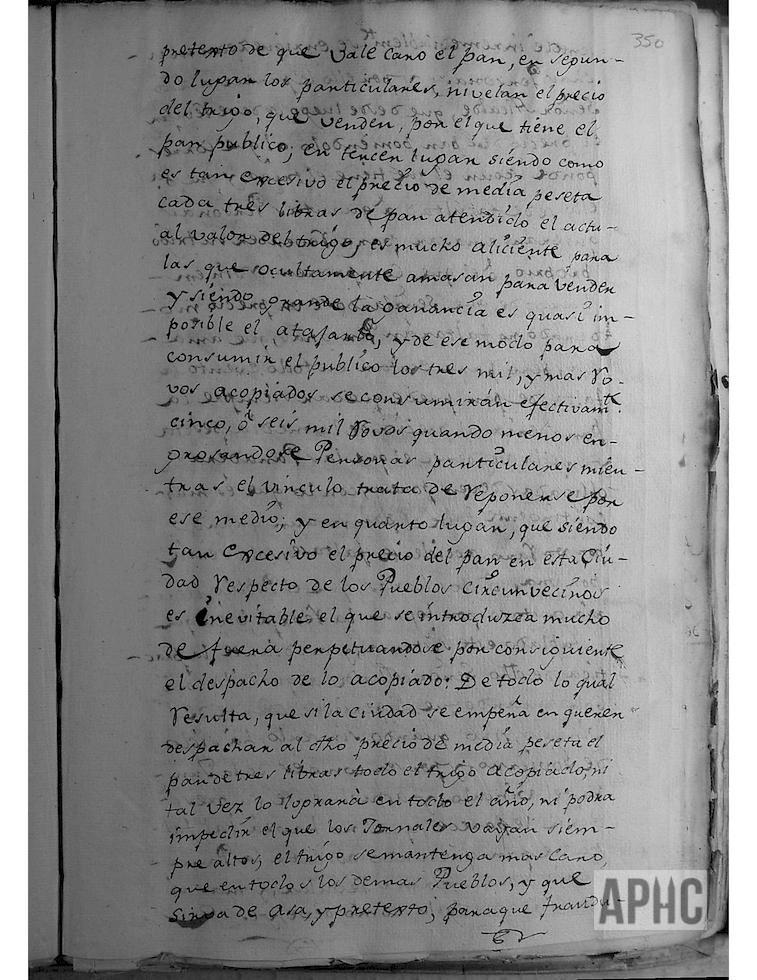 350
pretexto de que vale caro el pan, en segun-
do lugar los particulares, nivelan el precio
del trigo, que venden, por el que tiene el
pan publico; en tercer lugar siendo como
es tan excesivo el precio de media peseta
cada tres libras de pan atendido el actu-
al valor del trigo, es mucho aliciente para
las que ocultamente amasan para vender
y siendo grande la ganancia es quasi im-
posible el atajarla, y de ese modo para
consumir el publico los tres mil, y mas Ro-
vos acopiados se consumiran efectivamte.
cinco, ó seis mil Rovos quando menos en-
grosandose Personas particulares mien-
tras el vinculo trata de Reponerse por
ese medio; y en quarto lugar, que siendo
tan excesivo el precio del pan en esta Ciu-
dad Respecto de los Pueblos Circunvecinos
es inevitable el que se introduzca mucho
de fuera perpetuandose por consiguiente
el despacho de lo acopiado: De todo lo qual
Resulta, que si la Ciudad se empeña en querer
despachar al dho precio de media peseta el
pan de tres libras todo el trigo acopiado, ni
tal vez lo lograrà en todo el año, ni podra
impedir el que los Jornales vayan siem-
pre altos, el trigo se mantenga mas caro,
que en todos los demas Pueblos, y que
sirva de asa, y pretexto, para que fraudu-
APHC